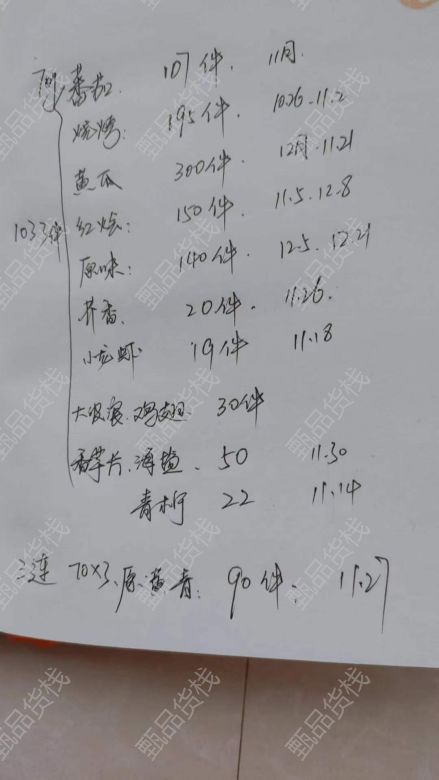 70g 番茄. 107件. 11月.
烧烤: 195件. 1026.11.2
黄瓜 300件. 12月.11.21
1033件 红烩: 150件. 11.5.12.8
原味: 140件. 12.5. 12.21
芥香. 20件. 11.26.
小龙虾 19件 11.18
大波浪.鸡翅. 30件
薯片.海盐. 50 11.30
青柠 22 11.14
三连 70×3.原.黄.青: 90件: 11.27
甄品货栈